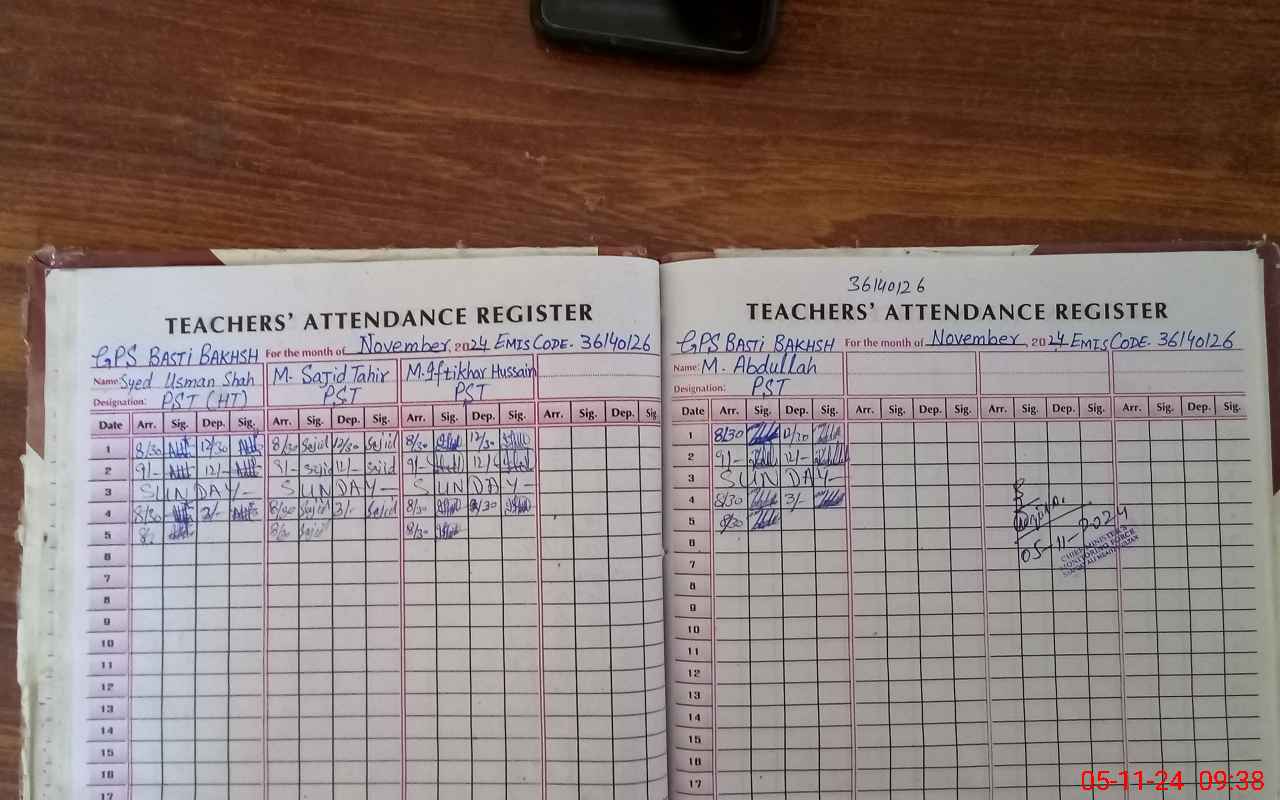 TEACHERS' ATTENDANCE REGISTER
GPS BASTI BAKHSH For the month of November, 2024 EMIS CODE. 36140126
Name: Syed Usman Shah M. Sajid Tahir M. Iftikhar Hussain
Designation: PST (HT) PST PST
Date Arr. Sig. Dep. Sig. Arr. Sig. Dep. Sig. Arr. Sig. Dep. Sig. Arr. Sig. Dep. Sig.
1 8/30 12/30 8/30 Sajid 12/30 Sajid 8/30 12/30
2 9/- 12/- 9/- Sajid 12/- Sajid 9/- 12/-
3 SUNDAY- SUNDAY- SUNDAY-
4 8/30 3/- 8/30 Sajid 3/- Sajid 8/30
5 8/30 Sajid 8/30
6
7
8
9
10
11
12
13
14
15
16
17
36140126
TEACHERS' ATTENDANCE REGISTER
GPS BASTI BAKHSH For the month of November, 2024 EMIS CODE. 36140126
Name: M. Abdullah
Designation: PST
Date Arr. Sig. Dep. Sig. Arr. Sig. Dep. Sig. Arr. Sig. Dep. Sig. Arr. Sig. Dep. Sig.
1 8/30 12/30
2 9/- 12/-
3 SUNDAY
4 8/30 3/-
5 8/30
6
7
8
9
10
11
12
13
14
15
16
17
05-11-2024
CHIEF MINISTER'S
MONITORING FORCE
05-11-24 09:38